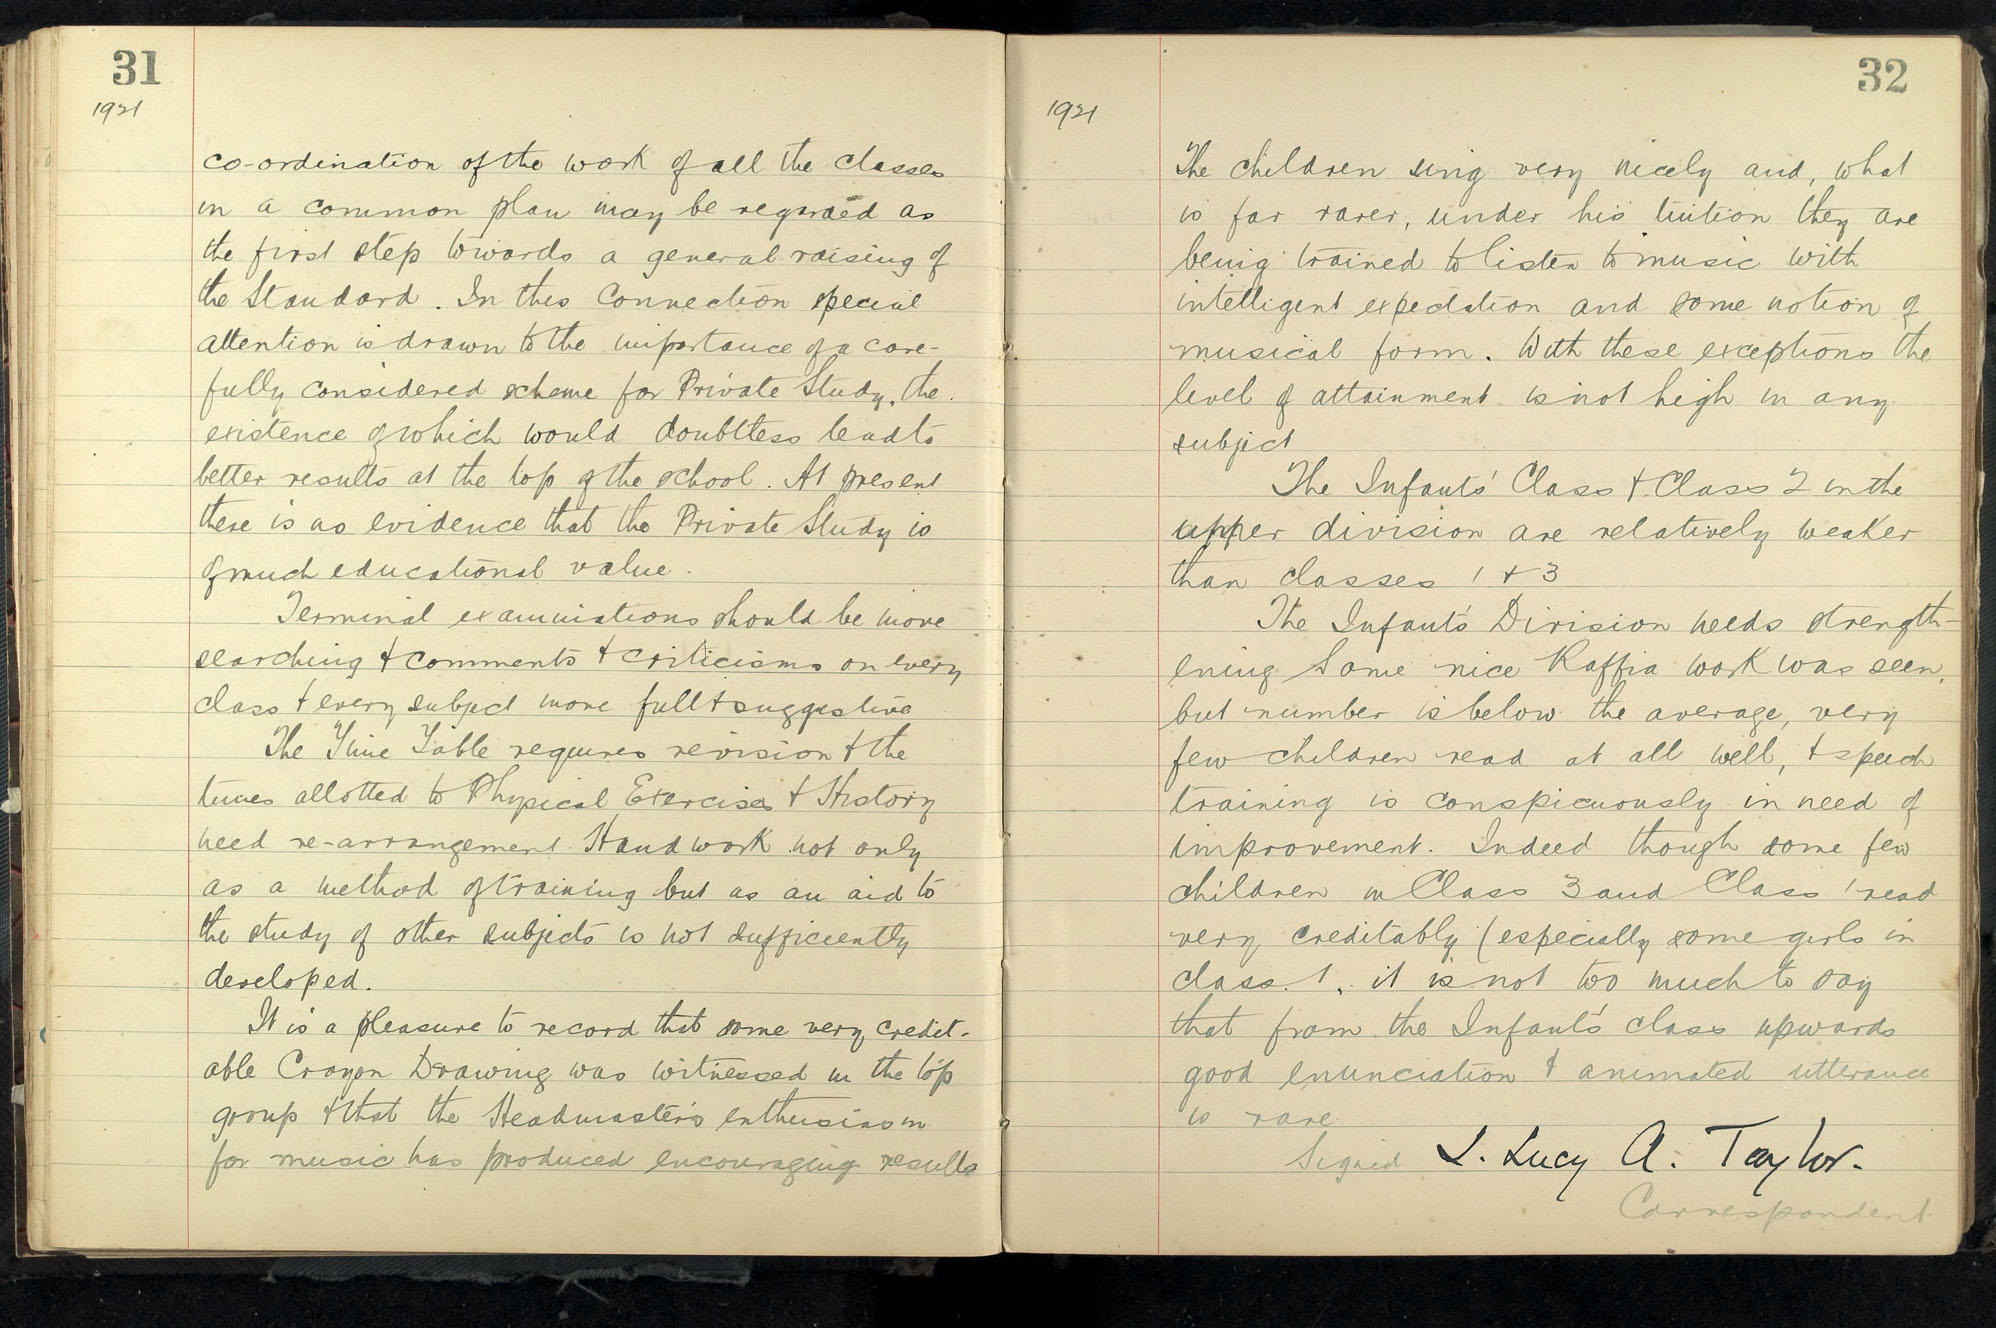 31
1921
co-ordination of the work of all the classes
in a common plan may be regarded as
the first step towards a general raising of
the Standard. In this Connection special
attention is drawn to the importance of a care-
fully considered scheme for Private Study, the
existence of which would doubtless lead to
better results at the top of the school. At present
there is no evidence that the Private Study is
of much educational value.
Terminal examinations should be more
searching & comments & criticisms on every
class & every subject more full & suggestive
The Time Table requires revision & the
times allotted to Physical Exercises & History
need re-arrangement. Handwork not only
as a method of training but as an aid to
the study of other subjects is not sufficiently
developed.
It is a pleasure to record that some very credit-
able Crayon Drawing was witnessed in the top
group & that the Headmaster's enthusiasm
for music has produced encouraging results
32
1921
The children sing very nicely and, what
is far rarer, under his tuition they are
being trained to listen to music with
intelligent expectation and some notion of
musical form. With these exceptions the
level of attainment is not high in any
subject
The Infants' Class & Class 2 in the
upper division are relatively weaker
than classes 1 & 3
The Infants' Division needs strength-
ening Some nice Raffia work was seen,
but number is below the average, very
few children read at all well, & speech
training is conspicuously in need of
improvement. Indeed though some few
children in Class 3 and Class 1 read
very creditably (especially some girls in
class 1, it is not too much to say
that from the Infants' class upwards
good enunciation & animated utterance
is rare
Signed L. Lucy A. Taylor.
Correspondent